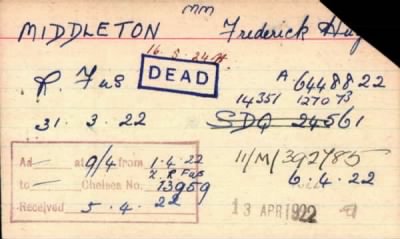 mm
MIDDLETON Frederick Hug
16.8.24
DEAD
R. Fus A. 6448822
14351 127073
31.3.22 SDQ 24561
As — at 9/4 from 1.4.22
2. R Fus
to — Chelsea No. 13959
Received 5.4.22
11/M/392785
6.4.22
13 APR 1922 2